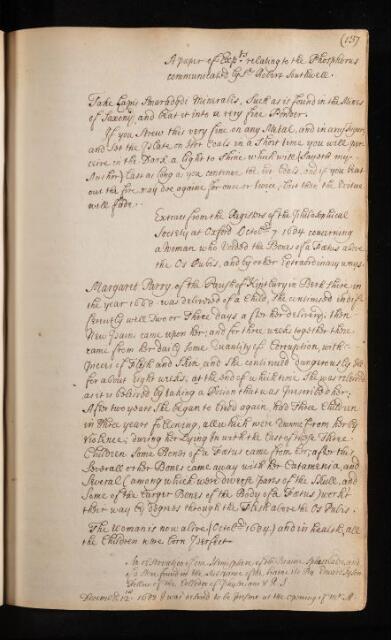 (137
A paper of Exp.ts relating to the Phosphorus
communicated by Sr. Robert Southwell.
Take Lapis Smaragdydis Mineralis, Such as is found in the Mines
of Saxony, and beat it into a very fine Powder.
If you strew this very fine on any Metal, and in any Figure,
and set the Plate on Hot Coals in a Short time you will per
ceive in the Dark a light to Shine, which will (Sayeth my
Author) Last as long as you continue the hot Coals, and if you beat
out the fire may doe againe for once or twice, but then the Vertue
will fade.
Extract from the Registers of the Philosophical
Society at Oxford Octob. 7 1684 concerning
a Woman who Voided the Bones of a Fœtus above
the Os Pubis, and by other Extraordinary ways.
Margaret Parry, of the Parish of Kintbury in Berkshire in
the year 1668 was delivered of a Child, She continued indif
ferently well Two or Three days after her delivery, then
New pains came upon her; and for three weeks together there
came from her daily Some Quantity of Corruption, with
pieces of Flesh and Skin and She continued Dangerously Ill
for about Eight weeks, at the end of which time She was relieved
as it is believed by taking a Potion that was prescribed her.
After two years She began to breed again, had Three Children
in Three years following, all which were
Violence; during her Lying In with the last of these Three
Children Some Bones of a Fœtus came from her; after this
Several other Bones came away with her Catamenia, and
Several (among which were diverse parts of the Skull, and
Some of the larger Bones of the Body of a Fœtus) workt
their way by degrees through the Flesh above the Os Pubis.
The Woman is now alive (Octob. 1684) and in health, all
the Children were born Perfect
An of the
of a Stone found in the
Fellow of the Colledge of Physicians & R. S.
December 12th 1688 I was desired to be present at the opening of Mr.